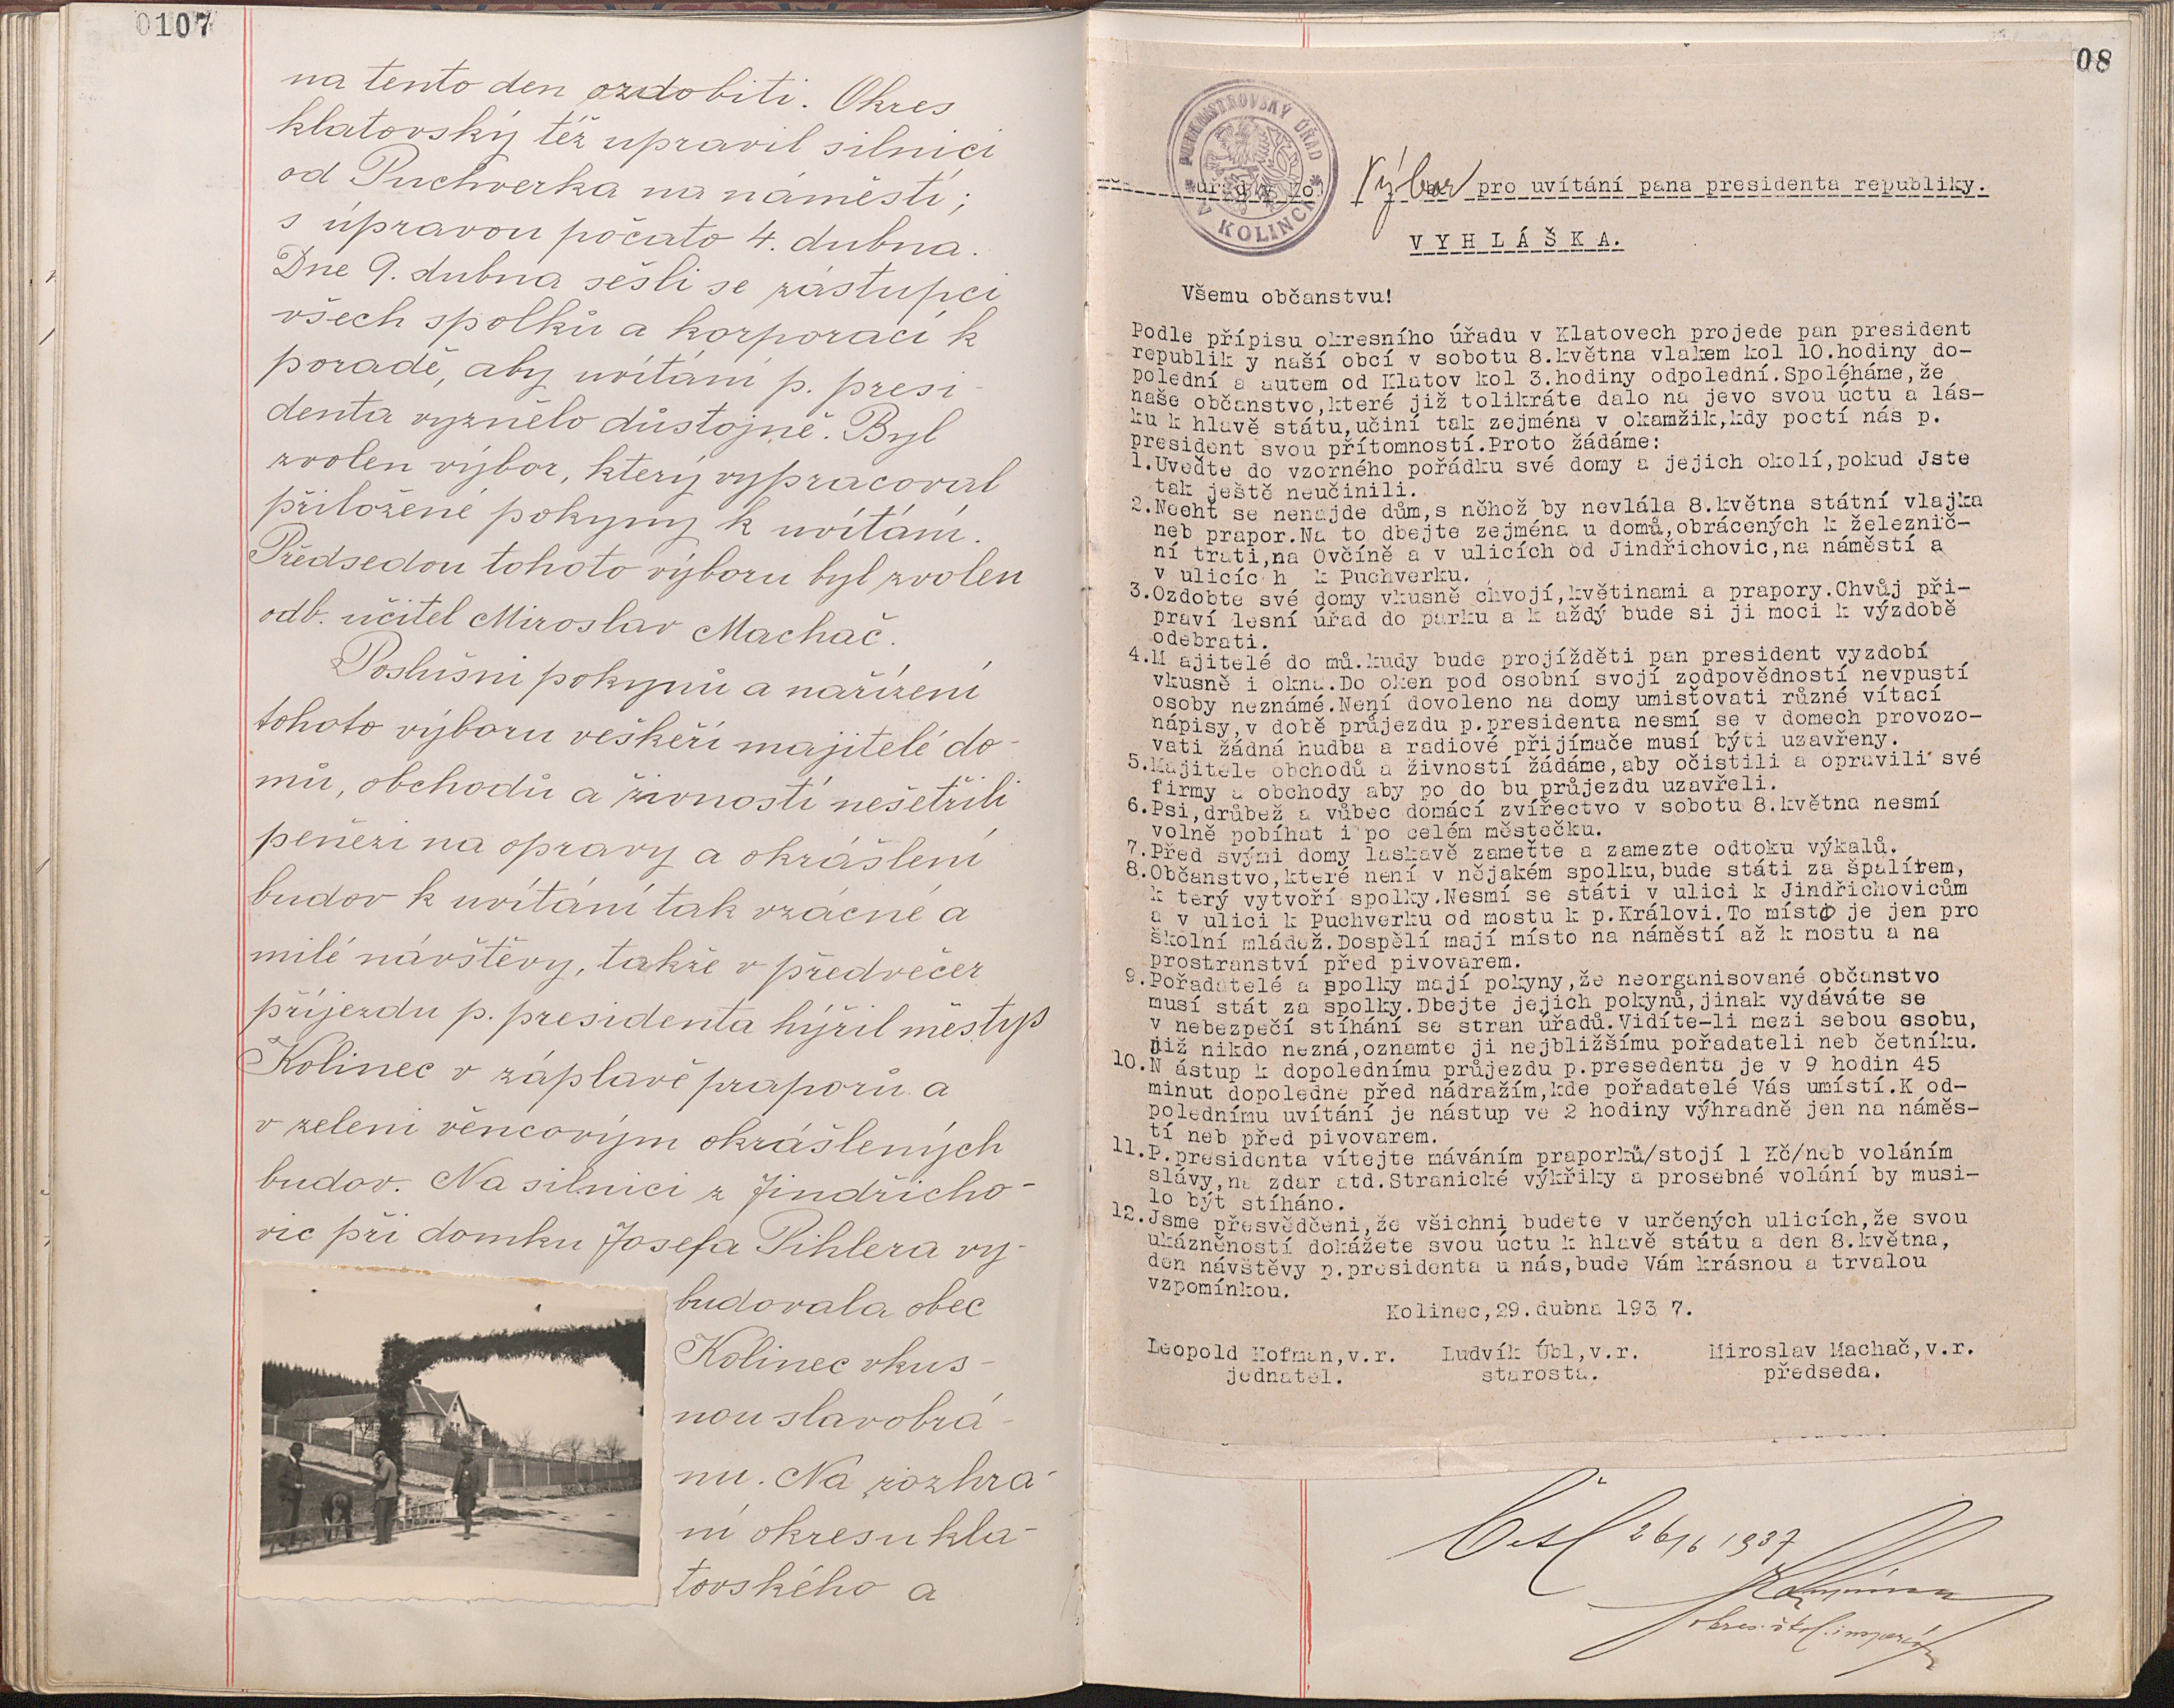 0107
na tento den ozdobiti. Okres
klatovský též upravil silnici
od Puchverka na náměstí;
s úpravou počato 4. dubna.
Dne 9. dubna sešli se zástupci
všech spolků a korporací k
poradě, aby uvítání p. presi-
denta vyznělo důstojně. Byl
zvolen výbor, který vypracoval
přiložené pokyny k uvítání.
Předsedou tohoto výboru byl zvolen
odb. učitel Miroslav Machač.
Poslušni pokynů a nařízení
tohoto výboru veškeří majitelé do-
mů, obchodů a živností nešetřili
penězi na opravy a okrášlení
budov k uvítání tak vzácné a
milé návštěvy, takže v předvečer
příjezdu p. presidenta hýřil městys
Kolinec v záplavě praporů a
v zeleni věncovým okrášlených
budov. Na silnici z Jindřicho-
vic při domku Josefa Pihlera vy-
budovala obec
Kolinec vkus-
nou slavobrá-
nu. Na rozhra-
ní okresu kla-
tovského a
08
PURKMISTROVSKÝ ÚŘAD
V KOLINCI
Výbor pro uvítání pana presidenta republiky.
VYHLÁŠKA.
Všemu občanstvu!
Podle přípisu okresního úřadu v Klatovech projede pan president
republik y naší obcí v sobotu 8.května vlakem kol 10.hodiny do-
polední a autem od Klatov kol 3.hodiny odpolední.Spoléháme,že
naše občanstvo,které již tolikráte dalo na jevo svou úctu a lás-
ku k hlavě státu,učiní tak zejména v okamžik,kdy poctí nás p.
president svou přítomností.Proto žádáme:
1.Uveďte do vzorného pořádku své domy a jejich okolí,pokud Jste
tak ještě neučinili.
2.Nechť se nenajde dům,s něhož by nevlála 8.května státní vlajka
neb prapor.Na to dbejte zejména u domů,obrácených k železnič-
ní trati,na Ovčíně a v ulicích od Jindřichovic,na náměstí a
v ulicíc h k Puchverku.
3.Ozdobte své domy vkusně chvojí,květinami a prapory.Chvůj při-
praví lesní úřad do parku a k aždý bude si ji moci k výzdobě
odebrati.
4.M ajitelé do mů.kudy bude projížděti pan president vyzdobí
vkusně i okna.Do oken pod osobní svojí zodpovědností nevpustí
osoby neznámé.Není dovoleno na domy umisťovati různé vítací
nápisy,v době průjezdu p.presidenta nesmí se v domech provozo-
vati žádná hudba a radiové přijímače musí býti uzavřeny.
5.Majitele obchodů a živností žádáme,aby očistili a opravili své
firmy a obchody aby po do bu průjezdu uzavřeli.
6.Psi,drůbež a vůbec domácí zvířectvo v sobotu 8.května nesmí
volně pobíhat i po celém městečku.
7.Před svými domy laskavě zameťte a zamezte odtoku výkalů.
8.Občanstvo,které není v nějakém spolku,bude státi za špalírem,
k terý vytvoří spolky.Nesmí se státi v ulici k Jindřichovicům
a v ulici k Puchverku od mostu k p.Královi.To místo je jen pro
školní mládež.Dospělí mají místo na náměstí až k mostu a na
prostranství před pivovarem.
9.Pořadatelé a spolky mají pokyny,že neorganisované občanstvo
musí stát za spolky.Dbejte jejich pokynů,jinak vydáváte se
v nebezpečí stíhání se stran úřadů.Vidíte-li mezi sebou osobu,
již nikdo nezná,oznamte ji nejbližšímu pořadateli neb četníku.
10.N ástup k dopolednímu průjezdu p.presedenta je v 9 hodin 45
minut dopoledne před nádražím,kde pořadatelé Vás umístí.K od-
polednímu uvítání je nástup ve 2 hodiny výhradně jen na náměs-
tí neb před pivovarem.
11.P.presidenta vítejte máváním praporků/stojí 1 Kč/neb voláním
slávy,na zdar atd.Stranické výkřiky a prosebné volání by musi-
lo být stíháno.
12.Jsme přesvědčeni,že všichni budete v určených ulicích,že svou
ukázněností dokážete svou úctu k hlavě státu a den 8.května,
den návštěvy p.presidenta u nás,bude Vám krásnou a trvalou
vzpomínkou.
Kolinec,29.dubna 193 7.
Leopold Hofman,v.r. Ludvík Úbl,v.r. Miroslav Machač,v.r.
jednatel. starosta. předseda.
Četl 26/6 1937
okres. škol. inspektor